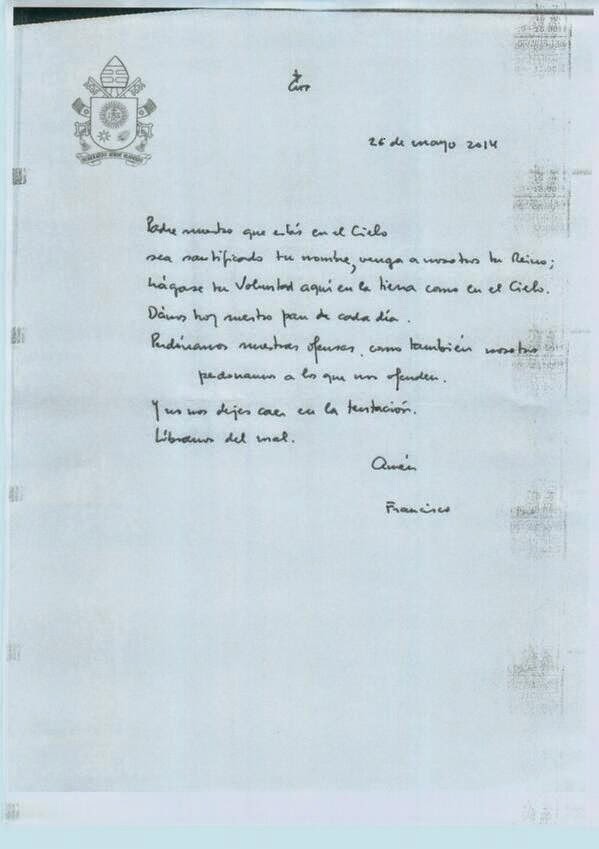 26 de mayo 2014
Padre nuestro que estás en el Cielo
sea santificado tu nombre, venga a nosotros tu Reino;
hágase tu Voluntad aquí en la tierra como en el Cielo.
Dános hoy nuestro pan de cada día.
Perdónanos nuestras ofensas, como también nosotros
perdonamos a los que nos ofenden.
Y no nos dejes caer en la tentación.
Líbranos del mal.
Amén
Francisco